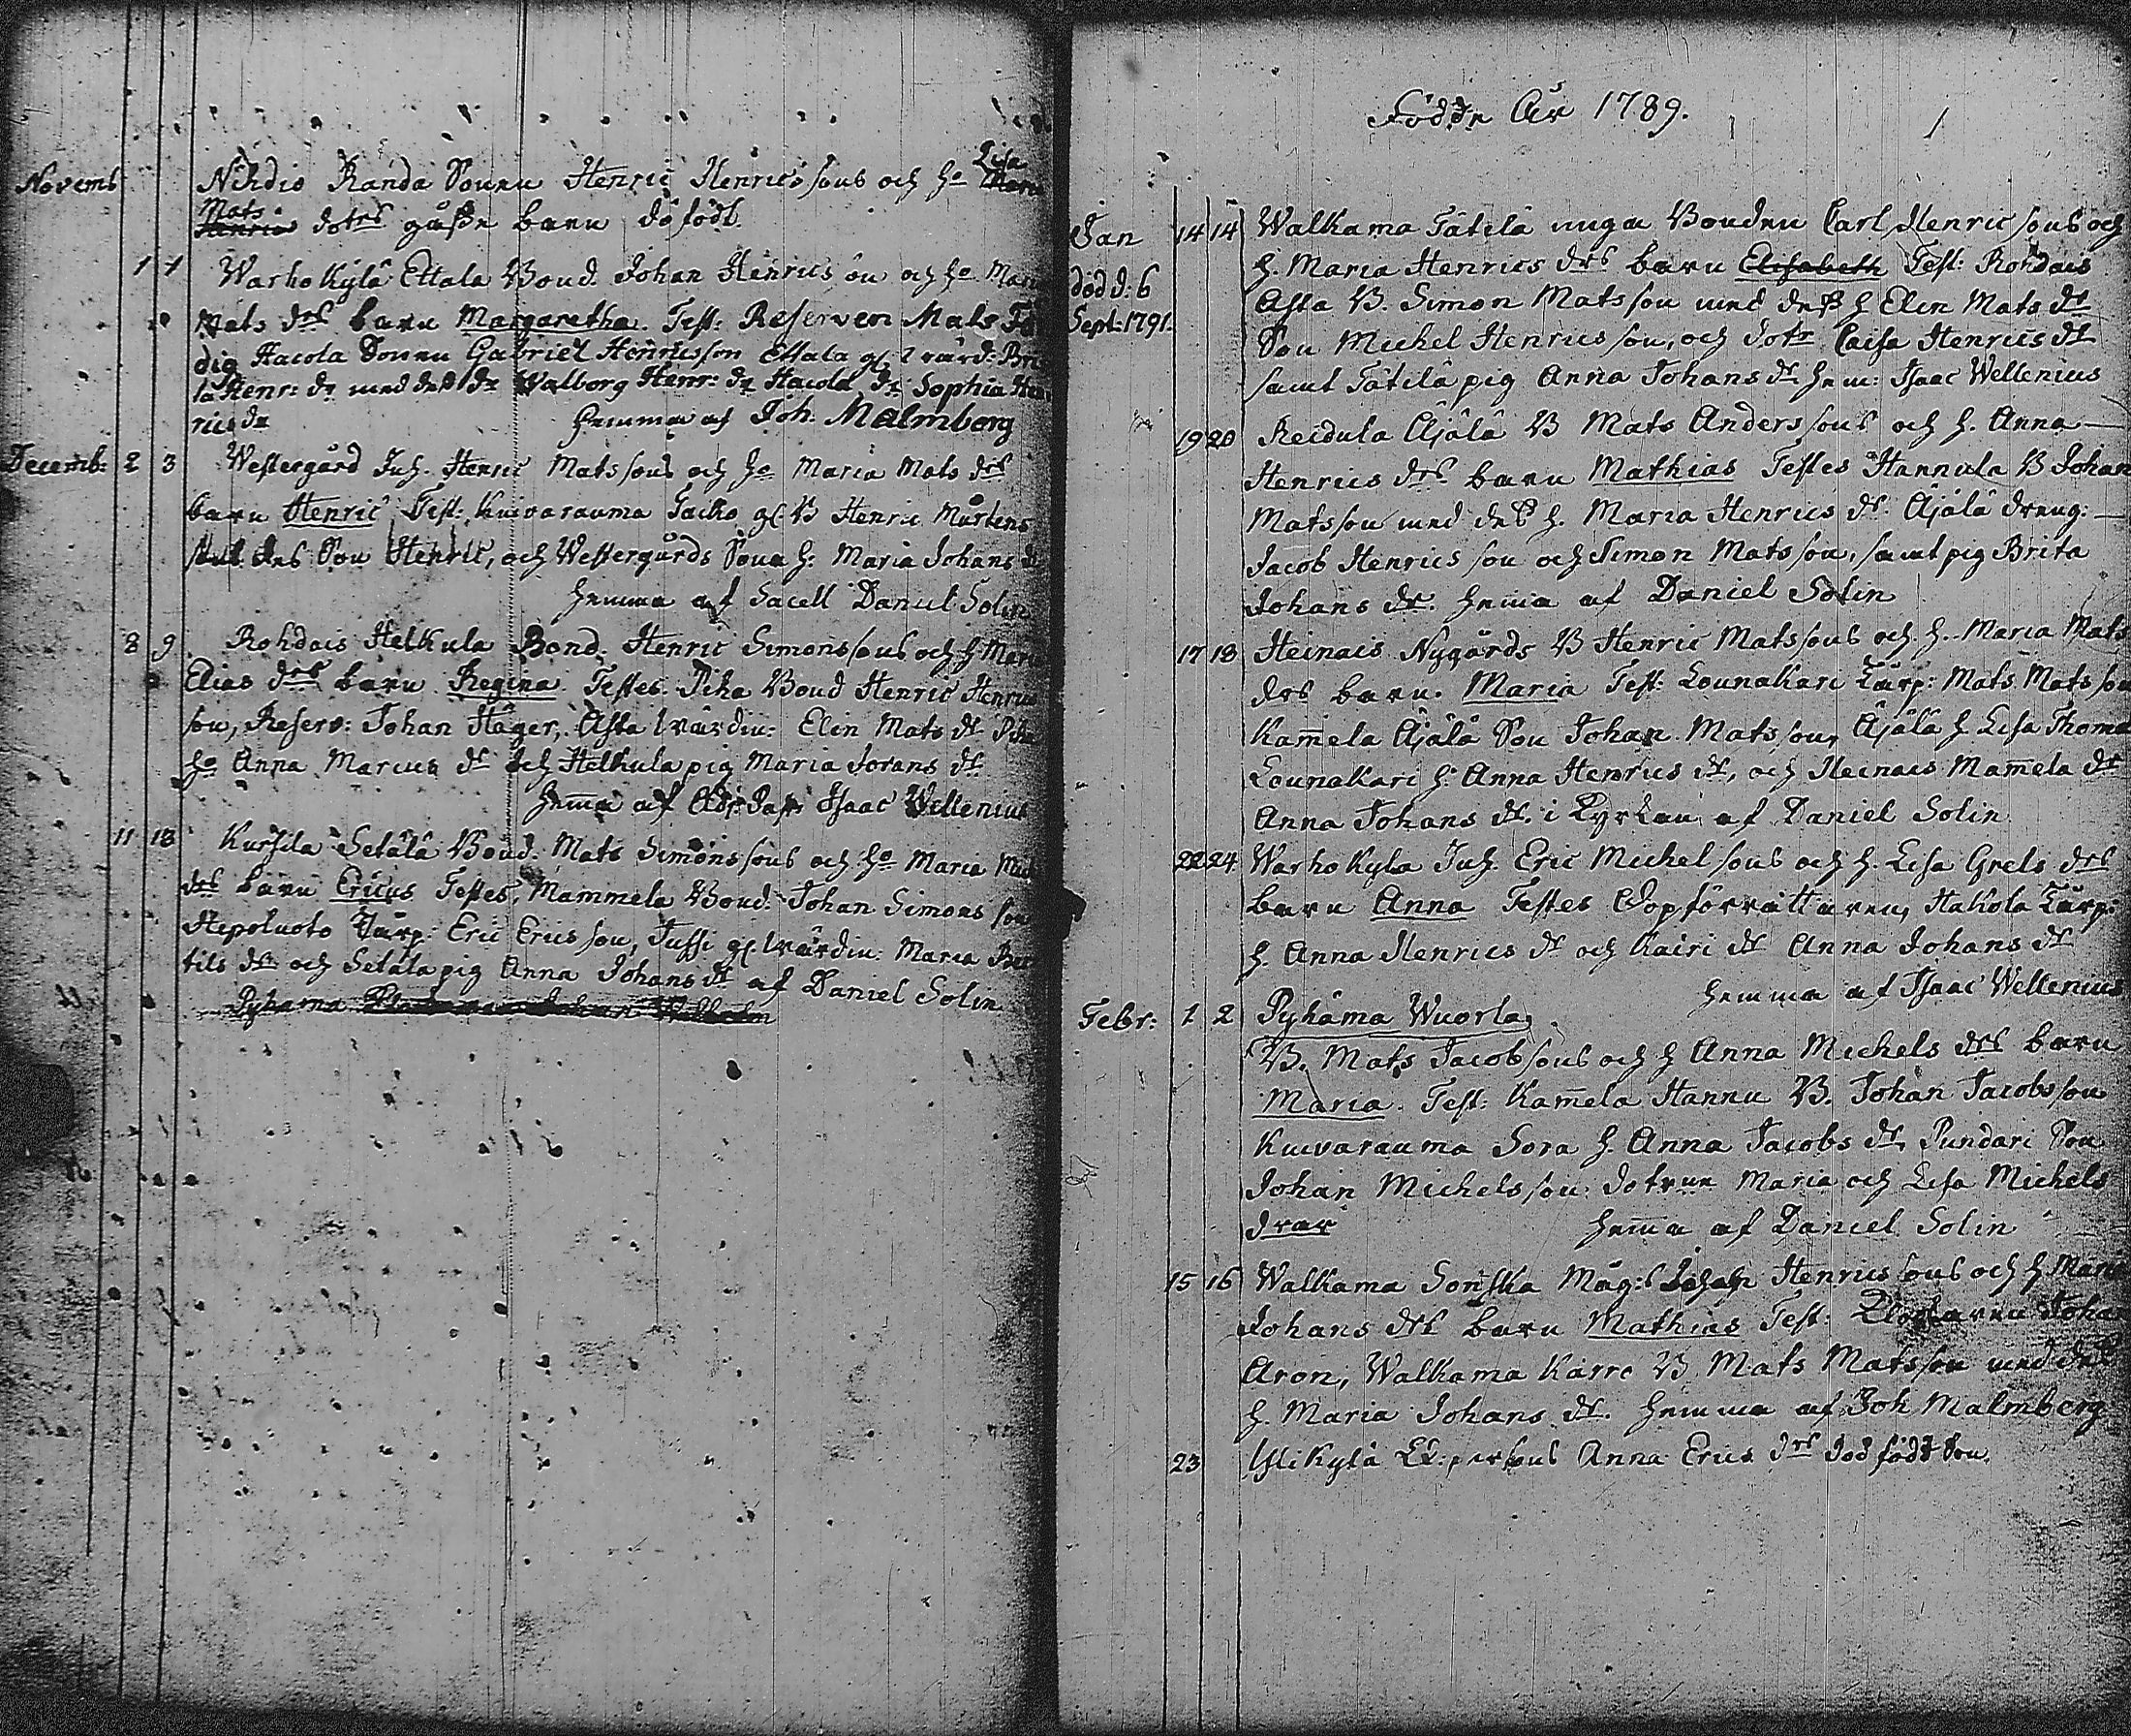 Novemb Nihdio Randa Sonen Henric Henrics sons och ho Lisa
Mats dotrs gåsse barn döfödt.
1 1 Warhokylä Ettala Bond. Johan Henrics on och ho Mari
Mats drs barn Margaretha. Test: Reserven Mats
dig Hacola Sonen Gabriel Henricsson Ettala gl. värd: Bri
ta Henr: dr med dess dr Walborg Henr: dr Hacola dr Sophia Hen
rics dr hemma af Joh. Malmborg
Decemb: 2 3 Westergård Inh. Henric Mats sons och ho Maria Mats drs
barn Henric Test: Kuivarauma Jacko gl. B Henric Mårtens
son dess Son Henric, och Westergårds Sona h: Maria Johans d
hemma af Sacell Daniel Solin
8 9 Rohdais Helkula Bond. Henric Simons sons och h Maria
Elias drs barn Regina. Testes. Piha Bond Henric Henrics
son, Reserv: Johan Häger, Asta värdin: Elin Mats dr Piha
ho Anna Marcus dr och Helkula pig Maria Jorans dr
hemma af Isaac Wellenius
11 13 Kursila Setälä Bond. Mats Simons sons och ho Maria
drs barn Ericus Testes, Mammela Bond: Johan Simons son
Hepoluoto Tårp: Eric Erics son, Jussi gl. värdin: Maria Ber
tils dr och Setälä pig Anna Johans dr af Daniel Solin
Pyhäma
Födde År 1789.
Jan 14 14 Walkama Tätilä unga Bonden Carl Henric sons och
h. Maria Henrics drs barn Elisabeth Test: Rohdais
död d: 6 Asta B. Simon Mats son med dess h Elin Mats dr
Sept: 1791. Son Michel Henrics son, och dotr Caisa Henrics dr
samt Tätilä pig Anna Johans dr hem: Isaac Wellenius
19 20 Reidula Äjälä B Mats Anders sons och h. Anna
Henrics drs barn Mathias Testes Hannula B Johan
Mats son med dess h. Maria Henrics dr. Äjälä dreng:
Jacob Henrics son och Simon Mats son, samt pig Brita
Johans dr. hema af Daniel Solin
17 18 Heinais Nygårds B Henric Mats sons och h. Maria Mats
drs barn. Maria Test: Lounakari Tårp: Mats Mats son
Kamela Äjälä Son Johan Mats son, Äjälä h Lisa Thomæ
Lounakari h: Anna Henrics dr, och Heinais Mamela dr
Anna Johans dr. i Kyrkan af Daniel Solin
22 24 Warhokyla Inh. Eric Michel sons och h. Lisa Grels drs
barn Anna Testes Dopförrättaren, Hakola Tårp:
h. Anna Henrics dr och Kairi dr Anna Johans dr
hemma af Isaac Wellenius
Febr: 1 2 Pyhäma Wuorla
B. Mats Jacob sons och h Anna Michels drs barn
Maria. Test: Kamela Hannu B. Johan Jacobs son
Kuivarauma Sora h. Anna Jacobs dr, Pundari Son
Johan Michels son: dotren Maria och Lisa Michels
drar hema af Daniel Solin
15 16 Walkama Sonska Måg:s Johan Henrics sons och h Maria
Johans drs barn Mathias Test: Klockaren Johan
Aron, Walkama Karre B. Mats Mats son med dess
h. Maria Johans dr. hemma af Joh Malmberg
23 Ylikylä Anna Erics drs död född Son.